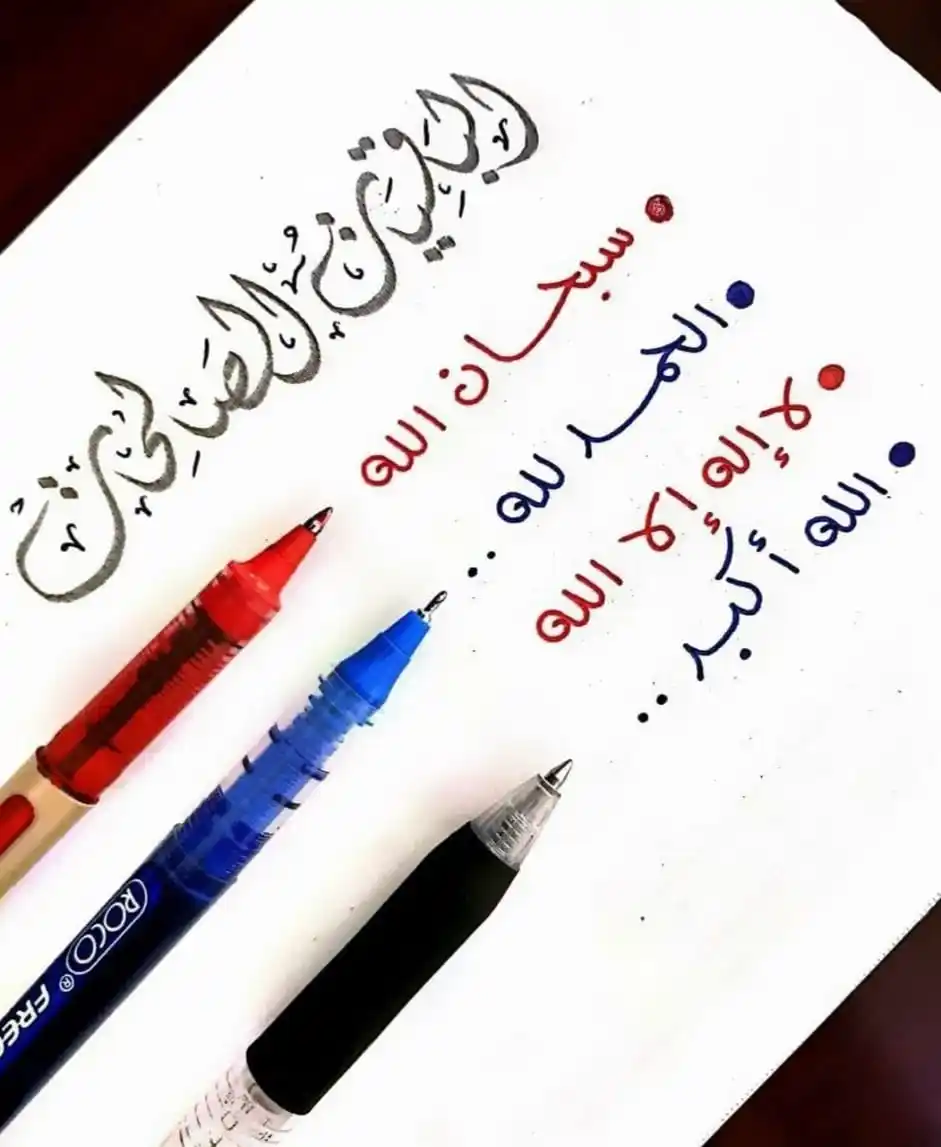 الباقيات الصالحات
• سبحان الله
• الحمد لله ..
• لا إله إلا الله
• الله أكبر ..
ROCO® FREE